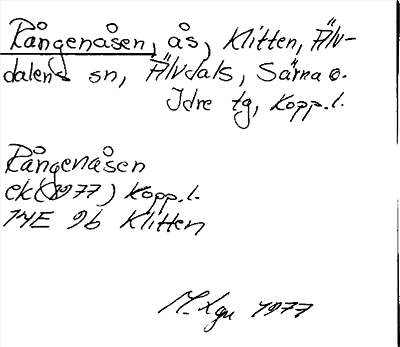 Rångenåsen, ås, Klitten, Älv-
dalens sn, Älvdals, Särna o.
Idre tg, Kopp.l.
Rångenåsen
ek(1977) Kopp.l.
14E 9b Klitten
1977